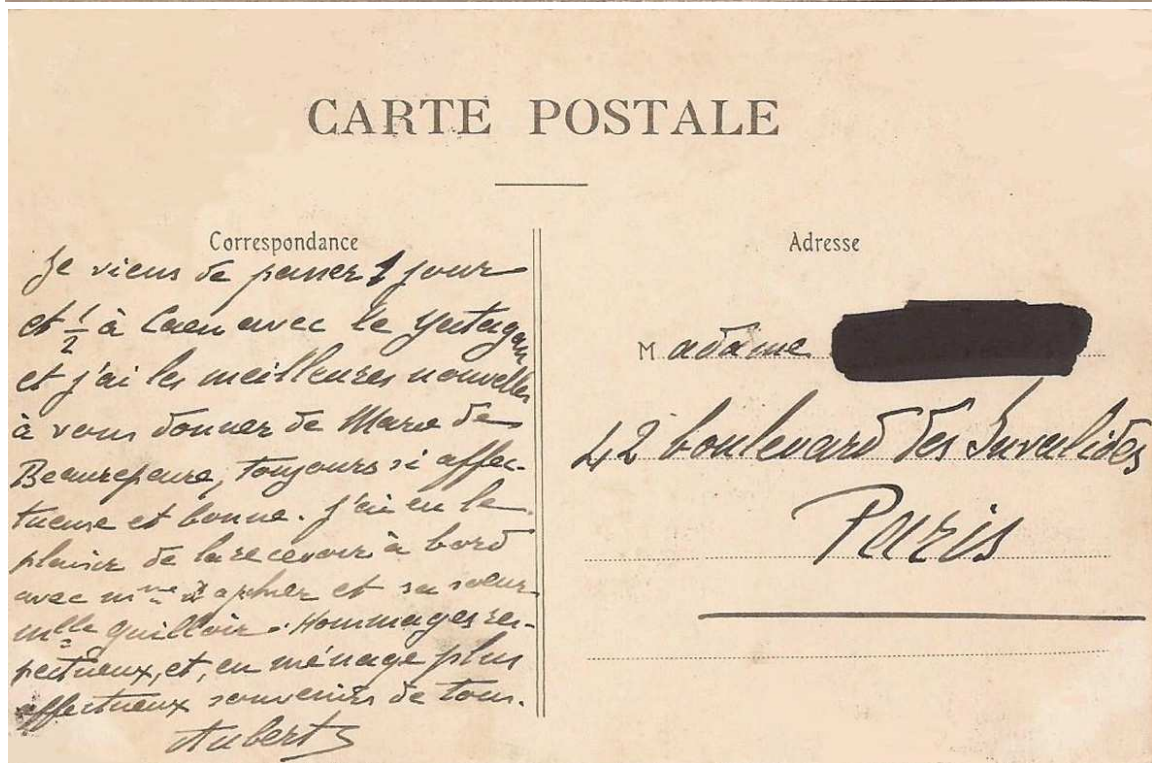 CARTE POSTALE
Correspondance
Je viens de passer 1 jour
et 1/2 à Caen avec le Yatagan
et j'ai les meilleures nouvelles
à vous donner de Marie de
Beaurepaire, toujours si affec-
tueuse et bonne. J'ai eu le
plaisir de la recevoir à bord
avec mme et sa soeur
mlle Guilloir. Hommages res-
pectueux, et, en ménage plus
affectueux souvenirs de tous.
Aubert
Adresse
Madame
42 boulevard des Invalides
Paris